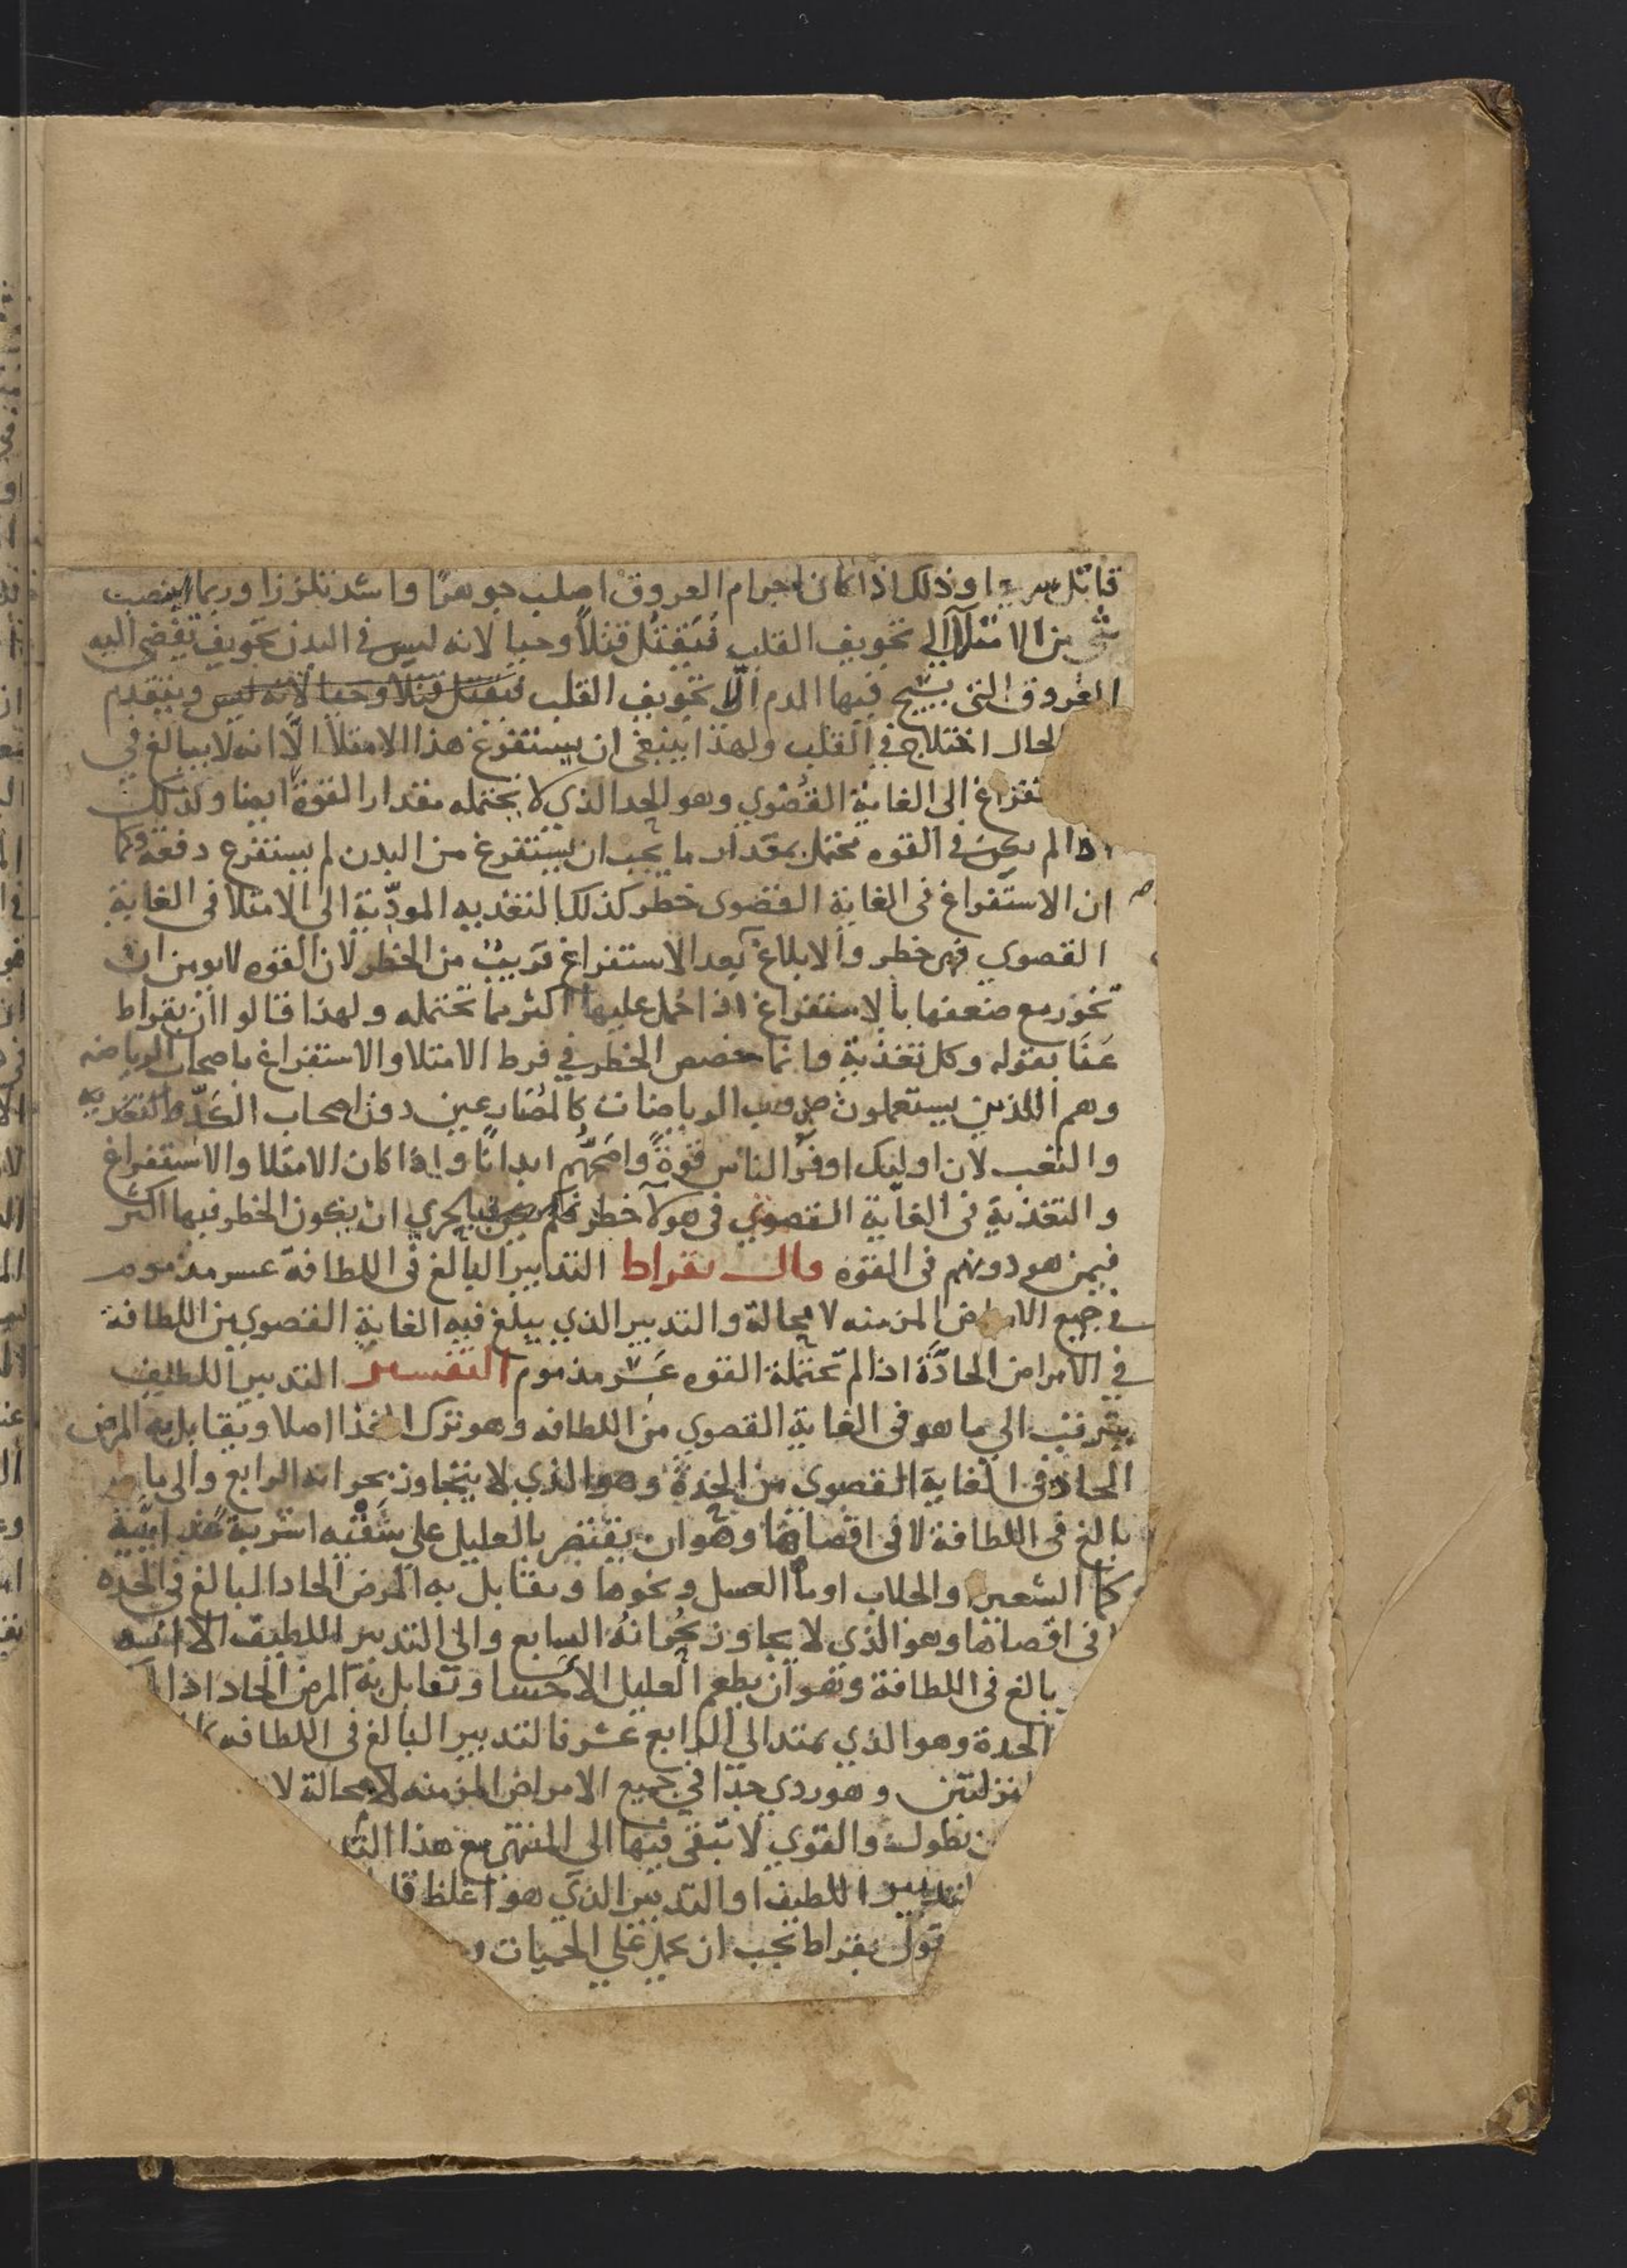 قاتل سريعا وذلك اذا كان اجرام العروق اصلب جوهرا واشد تلززا وربما انصبت
شي من الامتلآ الي تجويف القلب فَيَقتُل قتلاً وحيا لانه ليس في البدن تجويف تفضي اليه
العروق التي يسيح فيها الدم الّا تجويف القلب فيقتل قتلا وحيا لانه ليس ويتقدم
الحال اختلاج في القلب ولهذا ينبغي ان يستفرغ هذا الامتلآ الّا انه لا يبالغ في
تفراغ الى الغاية القصوي وهو الحد الذي لا يحتمله مقدار القوة ايضا وكذلك
اذا لم يكن في القوه محتمل بمقدار ما يجب ان يستفرغ من البدن لم يستفرع دفعة وكما
ان الاستفراغ في الغاية القصوى خطر كذلك التغذيه المودّية الى الامتلا في الغاية
القصوي فهى خطر والابلاغ بعد الاستفراغ قريبٌ من الخطر لان القوه لا يومن ان
تخور مع ضعفها بالاستفراغ اذا حُمل عليها اكثر مما تحتمله ولهذا قالوا ان بقراط
عَنَا بقوله وكل تغذية وانما خصص الخطر في فرط الامتلا والاستفراغ باصحاب الرياضه
وهم اللذين يستعملون ضروب الرياضات كالمصارعين دون اصحاب الكَدّ والتغذيه
والتعب لان اوليك اوفر الناس قوةً واصَحّهُم ابدانًا واذا كان الامتلا والاستفراغ
والتغذية في الغاية القصوي في هولآ خطر فبالحري ان يكون الخطر فيها اكثر
فيمن هو دونهم في القوه قال بقراط التدابير البالغ في اللطافة عسر مذموم
في جميع الامراض المزمنه لا محالة والتدبير الذي يبلغ فيه الغاية القصوي من اللطافة
في الامراض الحادّة اذا لم تحتمله القوه عَسر مذموم التفسير التدبير اللطيف
يترتب الي ما هو في الغاية القصوي من اللطافه وهو ترك الغذا اصلا ويقابل به المرض
الحاد في الغاية القصوي من الحِدّة وهو الذي لا يتجاوز بحرانه الرابع والى ما هو
بالغ في اللطافة لا في اقصاها وهو ان يقتصر بالعليل على سَقْيه اشربة غذائيّة
كما الشعير والجلاب او ماٰ العسل ونحوها ويقابل به المرض الحاد البالغ في الحده
لا في اقصاها وهو الذي لا يجاوز بُحْرانُه السابع والى التدبير اللطيف الا انه
بالغ في اللطافة وهو ان يطعم العليل الاحسا وتقابل به المرض الحاد اذا
الحدة وهو الذي يمتد الي الرابع عشر فالتدبير البالغ في اللطافه
منزلتين وهو ردي جدّا في جميع الامراض المزمنه لا محالة لا
تطول والقوي لا تبقى فيها الى المنتهى مع هذا
التدبير اللطيف او التدبير الذي هو اغلظ
قول بقراط يجب ان يحمل علي الحميات